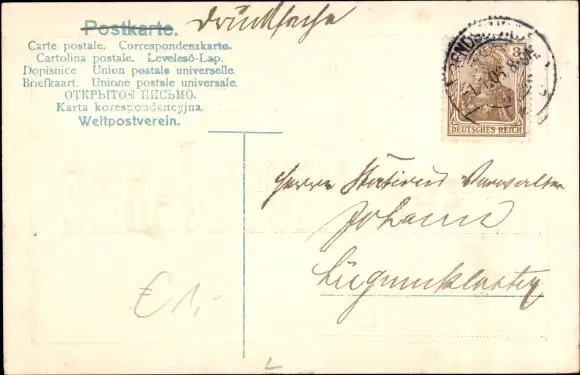 Postkarte. Drucksache
Carte postale. Correspondenzkarte.
Cartolina postale. Levelező-Lap.
Dopisnice Union postale universelle.
Briefkaart. Unione postale universale.
ОТКРЫТОЕ ПИСЬМО.
Karta korespondencyjna.
Weltpostverein.
3
DEUTSCHES REICH
Herrn Stations Verwalter
Johann
Lügumkloster
€ 1,-